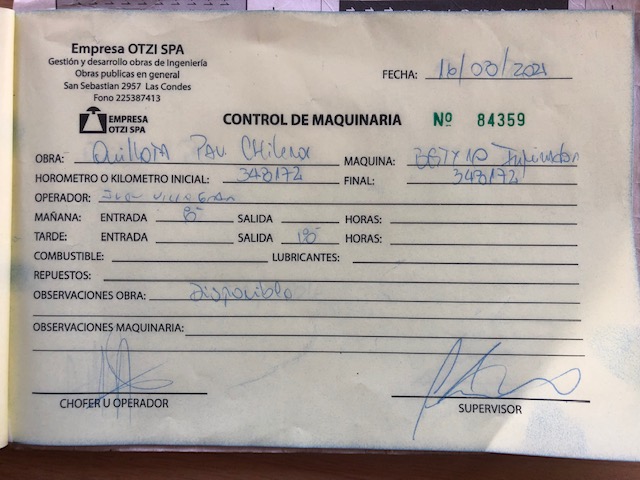 Empresa OTZI SPA
Gestión y desarrollo obras de Ingeniería
Obras publicas en general
San Sebastian 2957 Las Condes
Fono 225387413
FECHA: 16/03/2021
EMPRESA
OTZI SPA
CONTROL DE MAQUINARIA Nº 84359
OBRA: Quillota MAQUINA:
HOROMETRO O KILOMETRO INICIAL: 348172 FINAL: 348172
OPERADOR:
MAÑANA: ENTRADA 8 SALIDA HORAS:
TARDE: ENTRADA SALIDA 18 HORAS:
COMBUSTIBLE: LUBRICANTES:
REPUESTOS:
OBSERVACIONES OBRA: Disponible
OBSERVACIONES MAQUINARIA:
CHOFER U OPERADOR SUPERVISOR